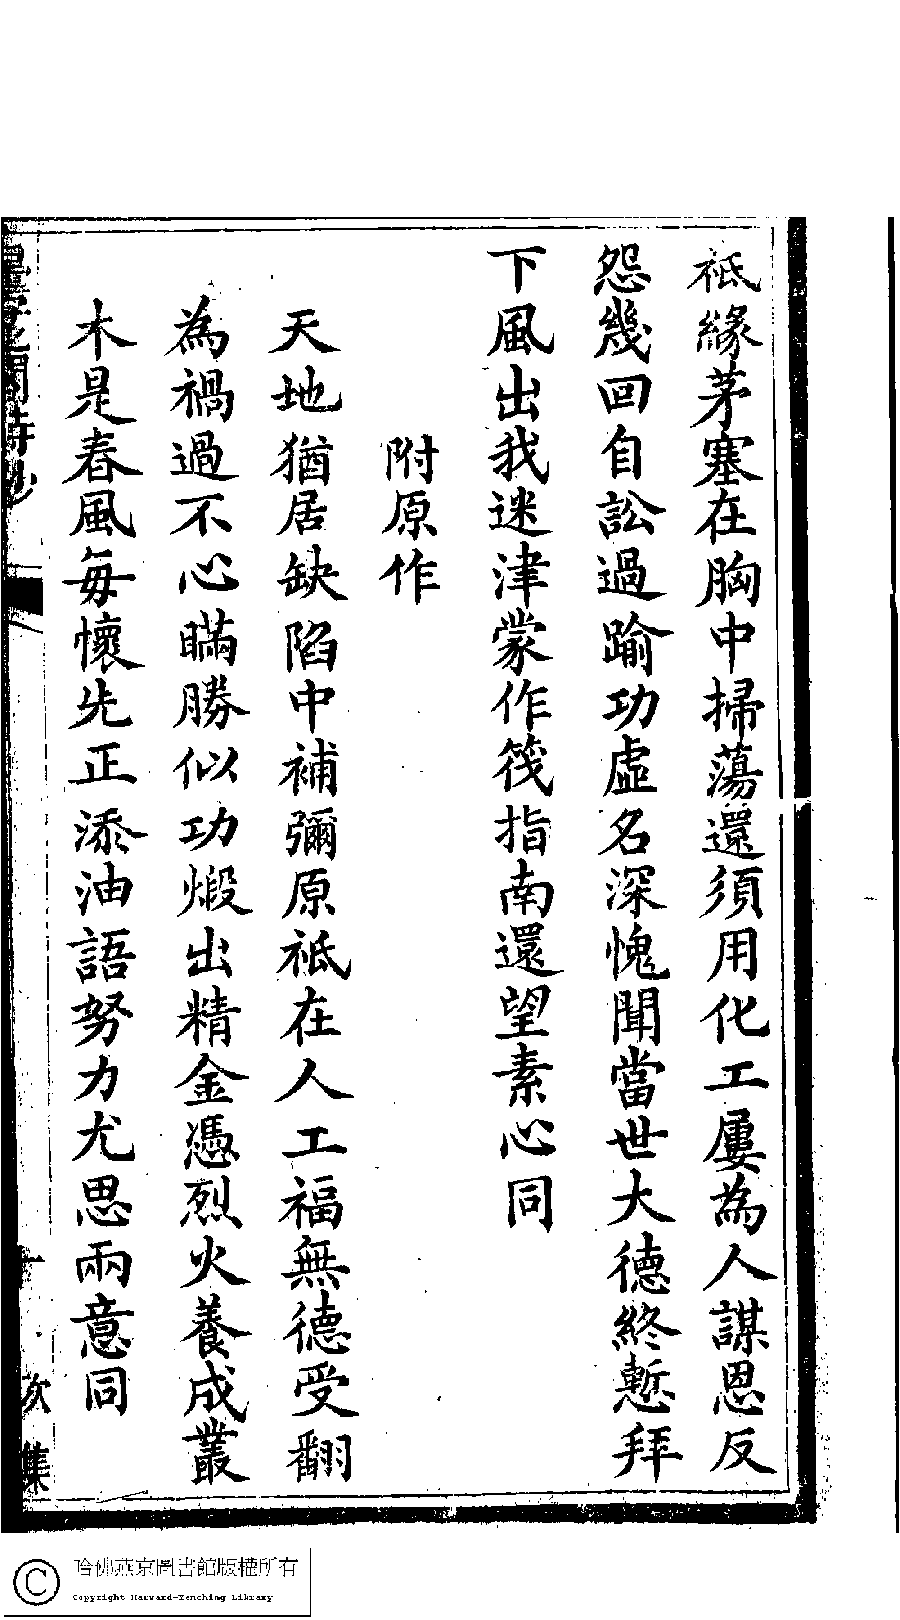 祗緣茅塞在胸中掃蕩還須用化工屢為人謀恩反
怨幾回自訟過踰功虛名深愧聞當世大德終慙拜
下風出我迷津蒙作筏指南還望素心同
附原作
天地猶居缺陷中補彌原祗在人工福無德受翻
為禍過不心瞞勝似功煅出精金憑烈火養成叢
木是春風每懷先正添油語努力尤思兩意同
次集
哈佛燕京圖書館版權所有
Copyright Harvard-Yenching Library